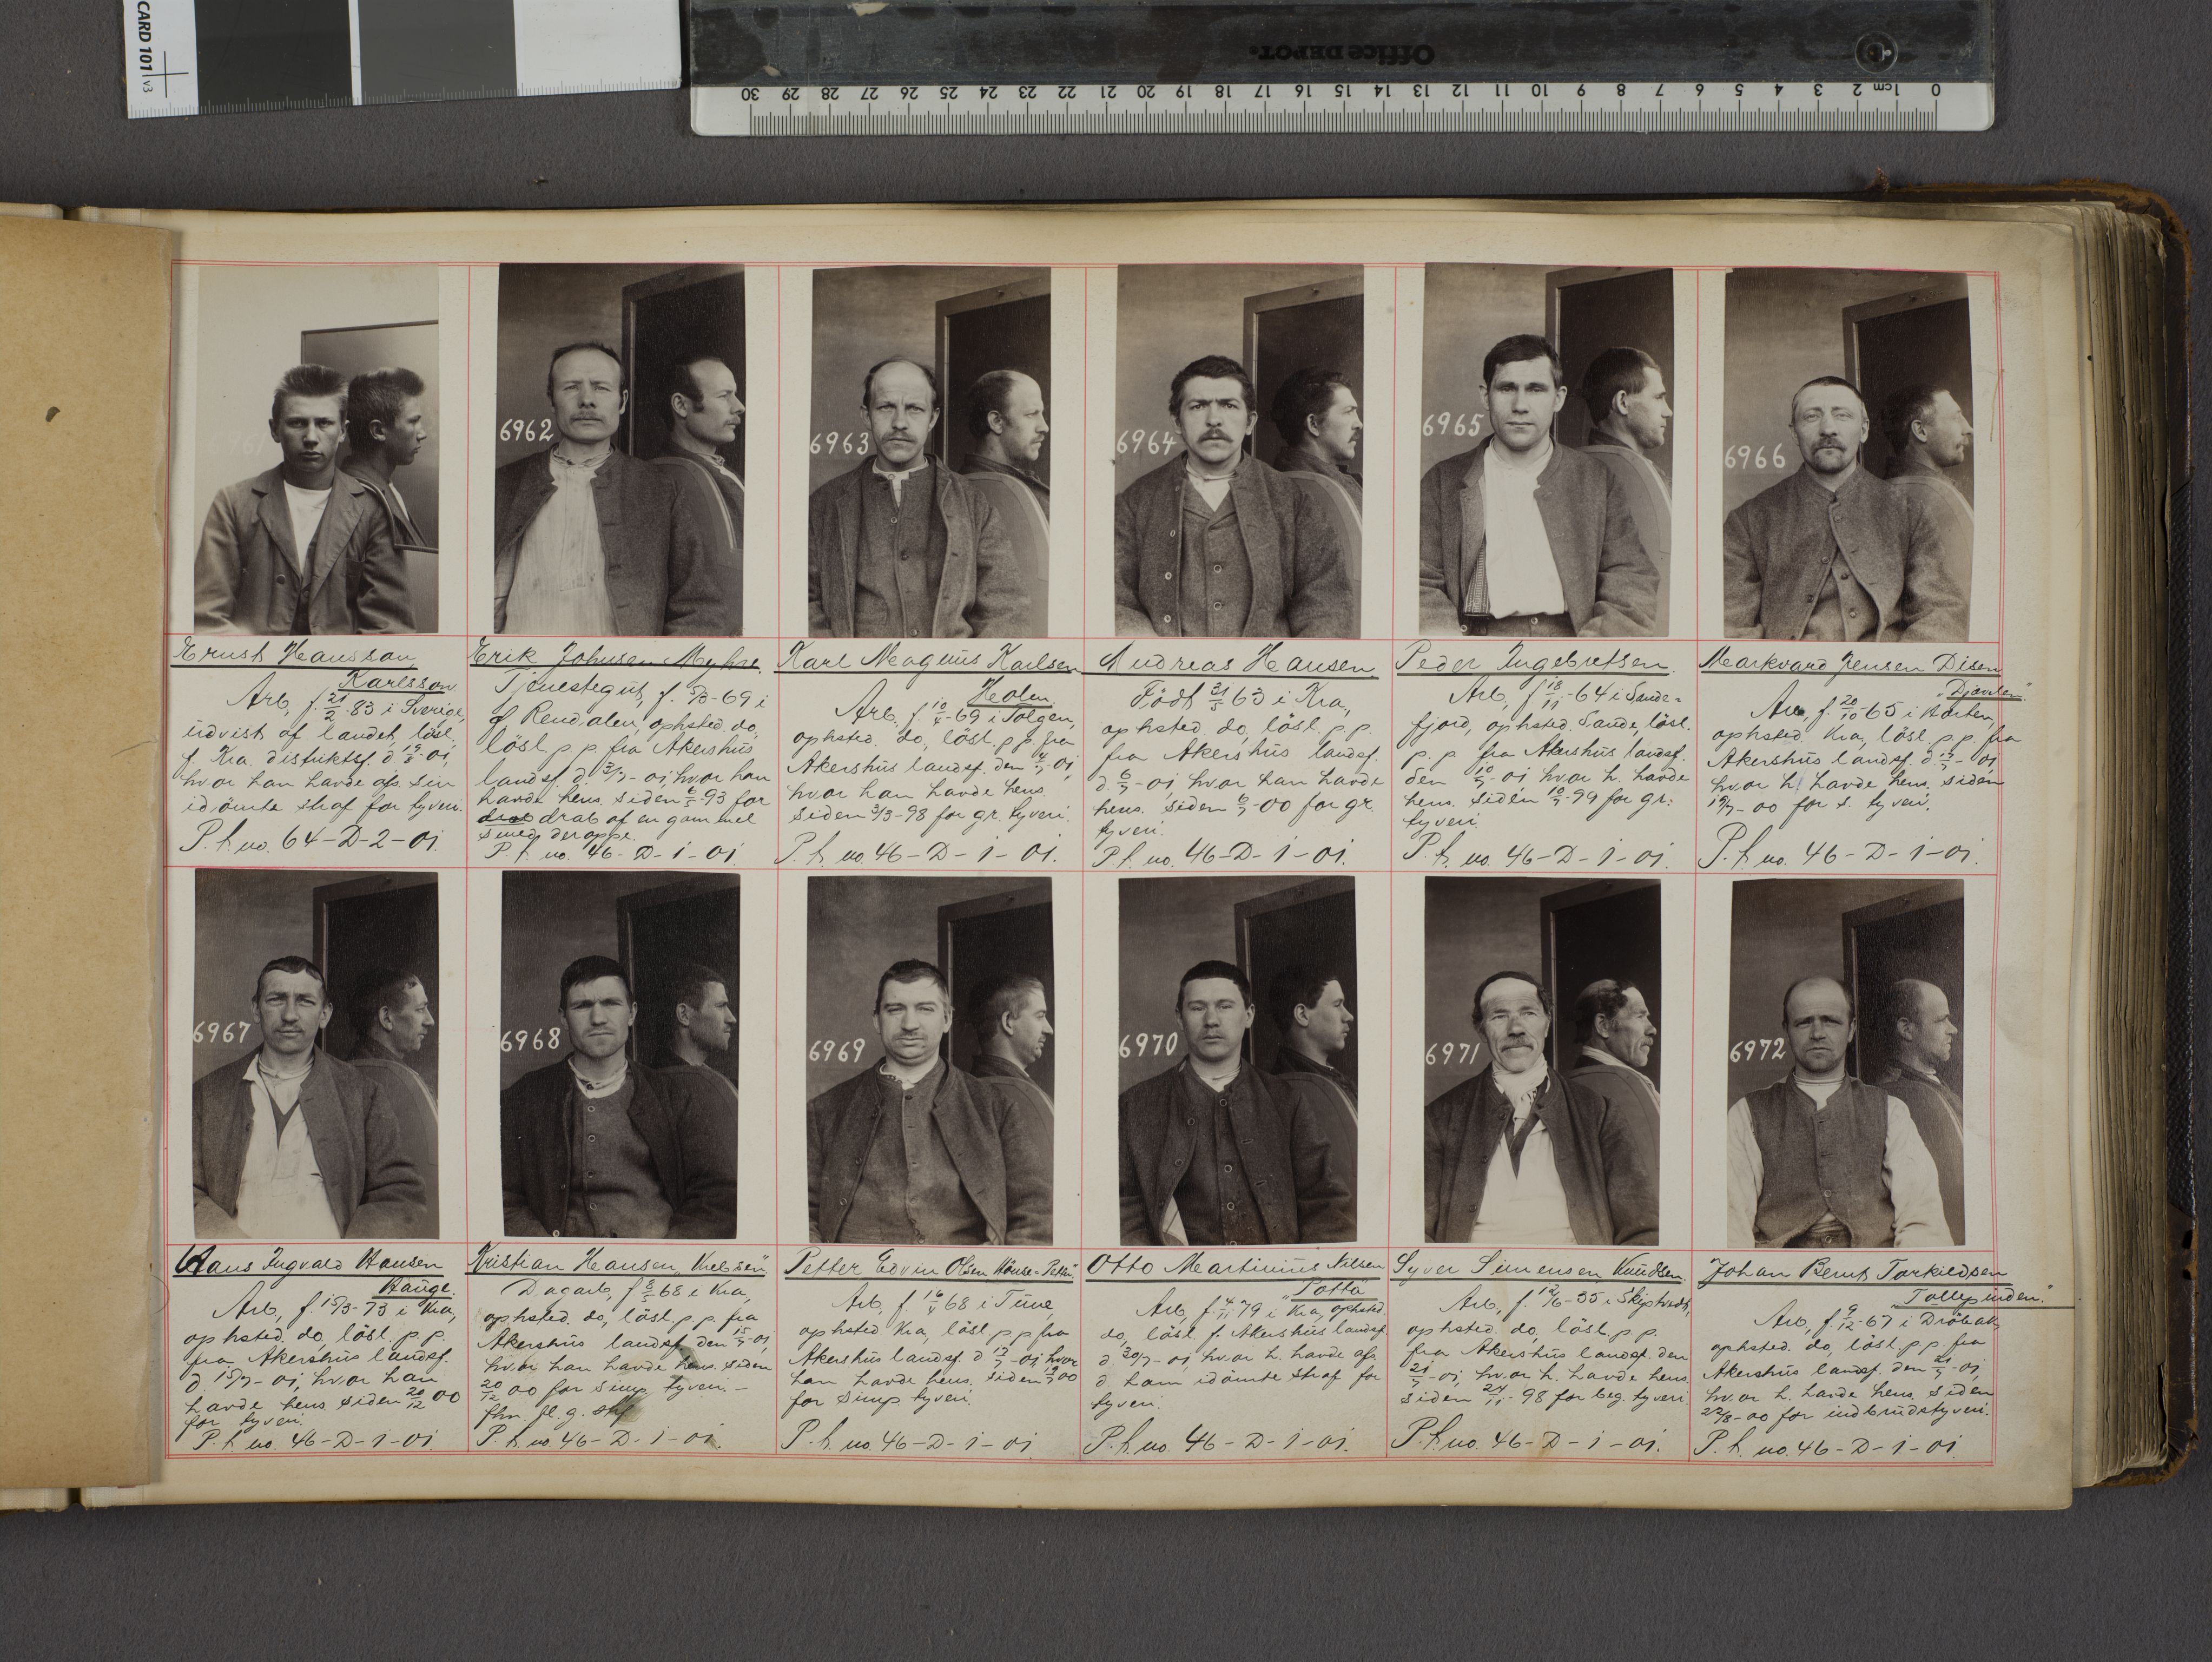 CARD 101 v3
Office DEPOT
30 29 28 27 26 25 24 23 22 21 20 19 18 17 16 15 14 13 12 11 10 9 8 7 6 5 4 3 2 1cm 0
6962
6963
6964
6965
6966
Ernst Hansson
Karlsson
Arb, f. 21/2-83 i Sverige,
udvist af landet, løsl.
f. Kra. distriktsf. d.
hvor han havde afs. sin
idømte straf for tyveri.
P. f. no. 64-D-2-01.
Erik Johnsen Myhre.
Tjenestegut, f. -69 i
Rendalen, ophsted. do,
løsl. p. p. fra Akershus
landsf. d. 3/7-01, hvor han
havde hens. siden 6/5-93 for
drab af en gammel
smed deroppe.
P. f. no. 46-D-1-01.
Karl Magnus Karlsen
Holen
Arb. f. 10/4-69 i Tolgen,
ophsted. do, løsl. p. p. fra
Akershus landsf. den 4/7-01,
hvor han havde hens.
siden 3/3-98 for gr. tyveri.
P. f. no. 46-D-1-01.
Andreas Hansen
Født 31/5 63 i Kra,
ophsted. do, løsl. p. p.
fra Akershus landsf.
d. 6/7-01, hvor han havde
hens. siden 6/7-00 for gr.
tyveri.
P. f. no. 46-D-1-01.
Peder Ingebretsen.
Arb, f. 18/11-64 i Sande-
fjord, ophsted. Sande, løsl.
p. p. fra Akershus landsf.
den 10/7-01 hvor h. havde
hens. siden 10/7-99 for gr:
tyveri.
P. f. no. 46-D-1-01.
Markvard Jensen Disen
"Djævlen"
f. 20/10-65 i Horten,
ophsted. Kra, løsl. p. p. fra
Akershus landsf. d. 12/7-01
hvor h. havde hens. siden
-00 for s. tyveri.
P. f. no. 46-D-1-01.
6967
6968
6969
6970
6971
6972
Hans Ingvald Hansen
Hauge.
Arb, f. 15/3-73 i Kra,
ophsted. do, løsl. p. p.
fra Akershus landsf.
d. 15/7-01, hvor han
havde hens. siden 20/12 00
for tyveri.
P. f. no. 46-D-1-01
Kristian Hansen
Dagarb, f. 8/5 68 i Kra,
ophsted. do, løsl. p. p. fra
Akershus landsf. den 15/7-01,
hvor han havde hens. siden
20/12 00 for simp. tyveri.-
fhn. fl. g. stf
P. f. no. 46-D-1-01.
Petter Edvin Olsen "Hønse-Petter"
Arb, f. 16/4 68 i Tune,
ophsted. Kra, løsl. p. p. fra
Akershus landsf. d. -01, hvor
han havde hens. siden
for simp. tyveri.
P. f. no. 46-D-1-01
Otto Martinius Nilsen
"Potta"
Arb, f. 4/11 79 i Kra, ophsted.
do, løsl. f. Akershus landsf.
d. 20/7-01, hvor h. havde afs.
d. ham idømte straf for
tyveri.
P. f. no. 46-D-1-01.
Syver Simensen Knudsen.
Arb, f. 12/6-55 i Skiptvedt,
ophsted. do, løsl. p. p.
fra Akershus landsf. den
21/7-01, hvor h. havde hens.
siden 24/11-98 for beg. tyveri
P. f. no. 46-D-1-01.
Johan Bernt Torkildsen
"Tollepinden."
Arb, f. 9/12-67 i Drøbak,
ophsted. do, løsl. p. p. fra
Akershus landsf. den 21/7-01,
hvor h. havde hens. siden
22/8-00 for indbrudstyveri.
P. f. no. 46-D-1-01.